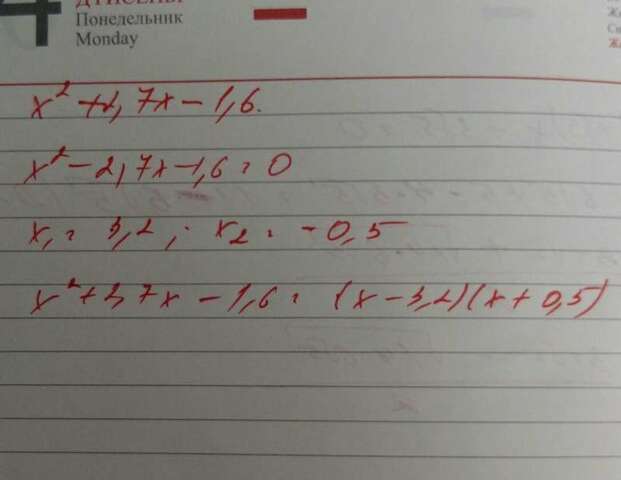 4
Понедельник
Monday
x² + 2,7x - 1,6.
x² - 2,7x - 1,6 = 0
x₁ = 3,2 ; x₂ = -0,5
x² + 2,7x - 1,6 = (x - 3,2)(x + 0,5)